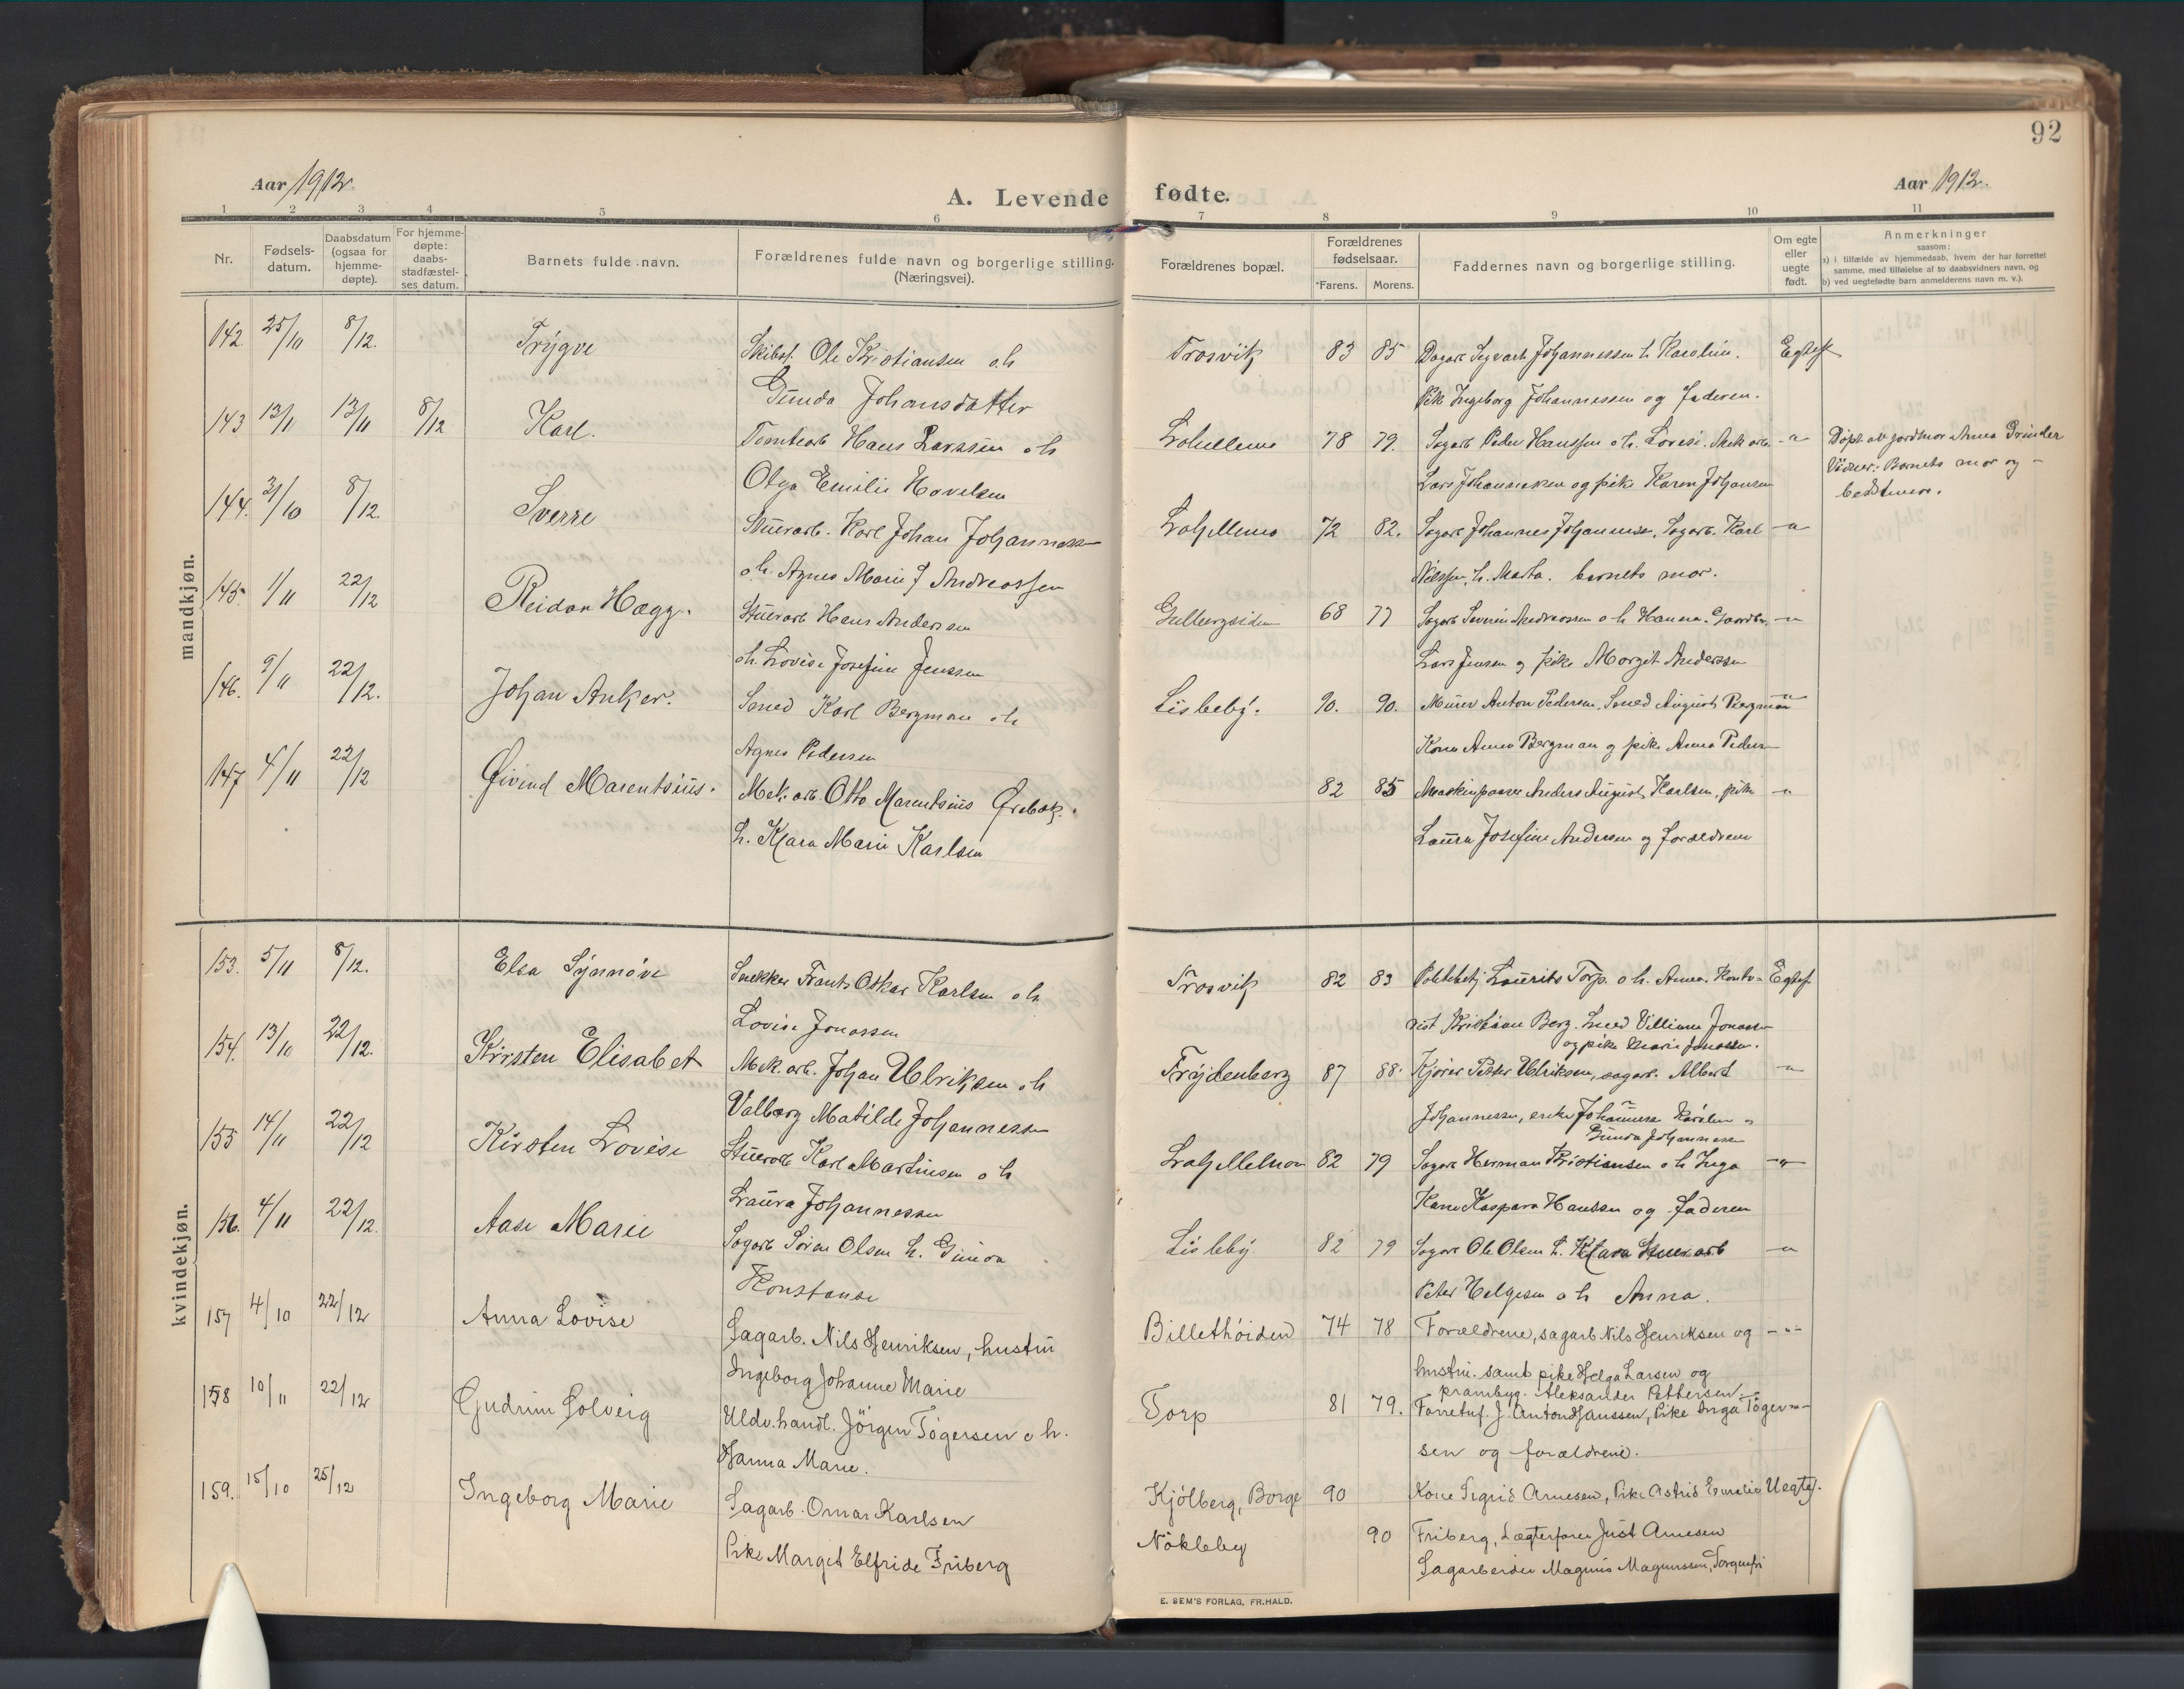 92
Aar 1912.
A. Levende fødte.
Aar 1912.
1 2 3 4 5 6 7 8 9 10 11
Nr.
Fødsels-
datum.
Daabsdatum
(ogsaa for
hjemme-
døpte).
For hjemme-
døpte:
daabs-
stadfæstel-
ses datum.
Barnets fulde navn.
Forældrenes fulde navn og borgerlige stilling.
(Næringsvei).
Forældrenes bopæl.
Forældrenes
fødselsaar.
Farens. Morens.
Faddernes navn og borgerlige stilling.
Om egte
eller
uegte
født.
Anmerkninger
saasom:
a) i tilfælde av hjemmedaab, hvem der har forrettet
samme, med tilføielse af to daabsvidners navn, og
b) ved uegtefødte barn anmelderens navn m. v.).
mandkjøn.
142 25/10 8/12. Trygve Skibst. Ole Kristiansen o.h Trosvik 83 85 Dagarb Sigvart Johannessen h. Karoline. Egtef
Gunda Johansdatter Pike Ingeborg Johannessen og Faderen.
143 13/11 13/11 8/12 Karl. Tomtearb Hans Larssen o h 78 79. Sagarb Peder Hanssen o.h. Lovise. Mek arb. -"- Døpt av jordmor Anna Grinder
Olga Emilie Havelsen Lars Johannesen og pike Karen Johansen Vidner: Barnets mor og -
bestemor.
144. 31/10 8/12. Sverre Stuerarb. Karl Johan Johannessen 72 82. Sagarb Johannes Johannessen, Sagarb. Karl -"-
o h. Agnes Marie J Andreassen Nilssen, h. Marta. barnets mor.
145. 1/11 22/12 Reidar Hægg. Stuerarb Hans Andersen 68 77 Sagarb Severin Andreassen o h Hanna. Gaardbr. -"-
oh. Lovise Josefine Jenssen Lars Jensen og pike Margit Anderssen
146. 9/11 22/12. Johan Anker. Smed Karl Bergman o h Lisleby. 90. 90. Murer Anton Pedersen, Smed August Bergman -"-
Agnes Pedersen Kone Anna Bergman og pike Anna Pedersen
147 4/11 22/12 Øivind Marentsius. Mek. arb. Otto Marentsius Ørebæk. 82 85 Maskinpasser Anders August Karlsen, pike -"-
h. Klara Marie Karlsen Laura Josefine Andersen og forældrene
kvindekjøn.
153. 5/11 8/12. Elsa Synnøve Snekker Frants Oskar Karlsen o h. Trosvik 82 83 Politibetj Laurits Torp. o h. Anna. Konto- Egtef.
Lovise Jonassen rist Kristian Berg. Smed Villiam Jonassen
og pike Marie Jonassen.
154. 13/10 22/12. Kirsten Elisabet Mek. arb. Johan Ulriksen o h Frydenberg 87 88. Kjører Peder Ulriksen, sagarb. Albert -"-
Valborg Matilde Johannessen Johannessen, enke Johanne Karolin og
Gunda Johannessen
155 14/11 22/12 Kirsten Lovise Stuerarb Karl Martinsen o h 82 79 Sagarb Herman Kristiansen o h Inga -"-
Laura Johannessen Kone Kaspara Hanssen og Faderen
156. 4/11 22/12. Aase Marie Sagarb Søren Olsen h. Gunda Lisleby 82 79 Sagarb Ole Olsen h. Klara Stuerarb -"-
Konstanse Peter Helgesen o h Anna.
157 4/10 22/12 Anna Lovise Sagarb. Nils Henriksen, hustru Billethöiden 74 78 Forældrene, sagarb Nils Henriksen og -"-
Ingeborg Johanne Marie hustru. samt pike Helga Larsen og
krambyg. Aleksander Pettersen.
158 10/11 22/12 Gudrun Solveig Uldv.handl. Jörgen Tögersen o h. Torp 81 79. Forretnf. J. Anton Hanssen, Pike Inga Töger- -"-
Hanna Marie. sen og forældrene.
159. 15/10 25/12 Ingeborg Marie Sagarb. Omar Karlsen Kjölberg, Borge 90 Kone Sigrid Arnesen, Pike Astrid Emelie Uegtef.
Pike Margit Elfride Friberg Nökleby 90 Friberg, Lægterfører Just Arnesen
Sagarbeider Magnus Magnussen, Sorgenfri
E. SEM'S FORLAG, FR.HALD.